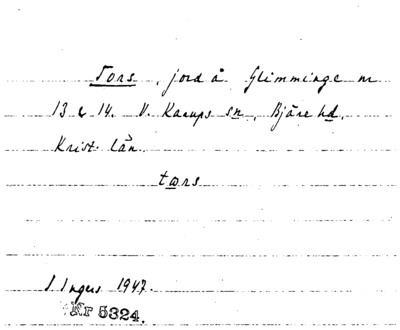 Tors, jord å Glimminge nr
13 & 14. V. Karups sn, Bjäre hd.
Krist. län.
tors
S. Ingers 1947.
Kr 5324.